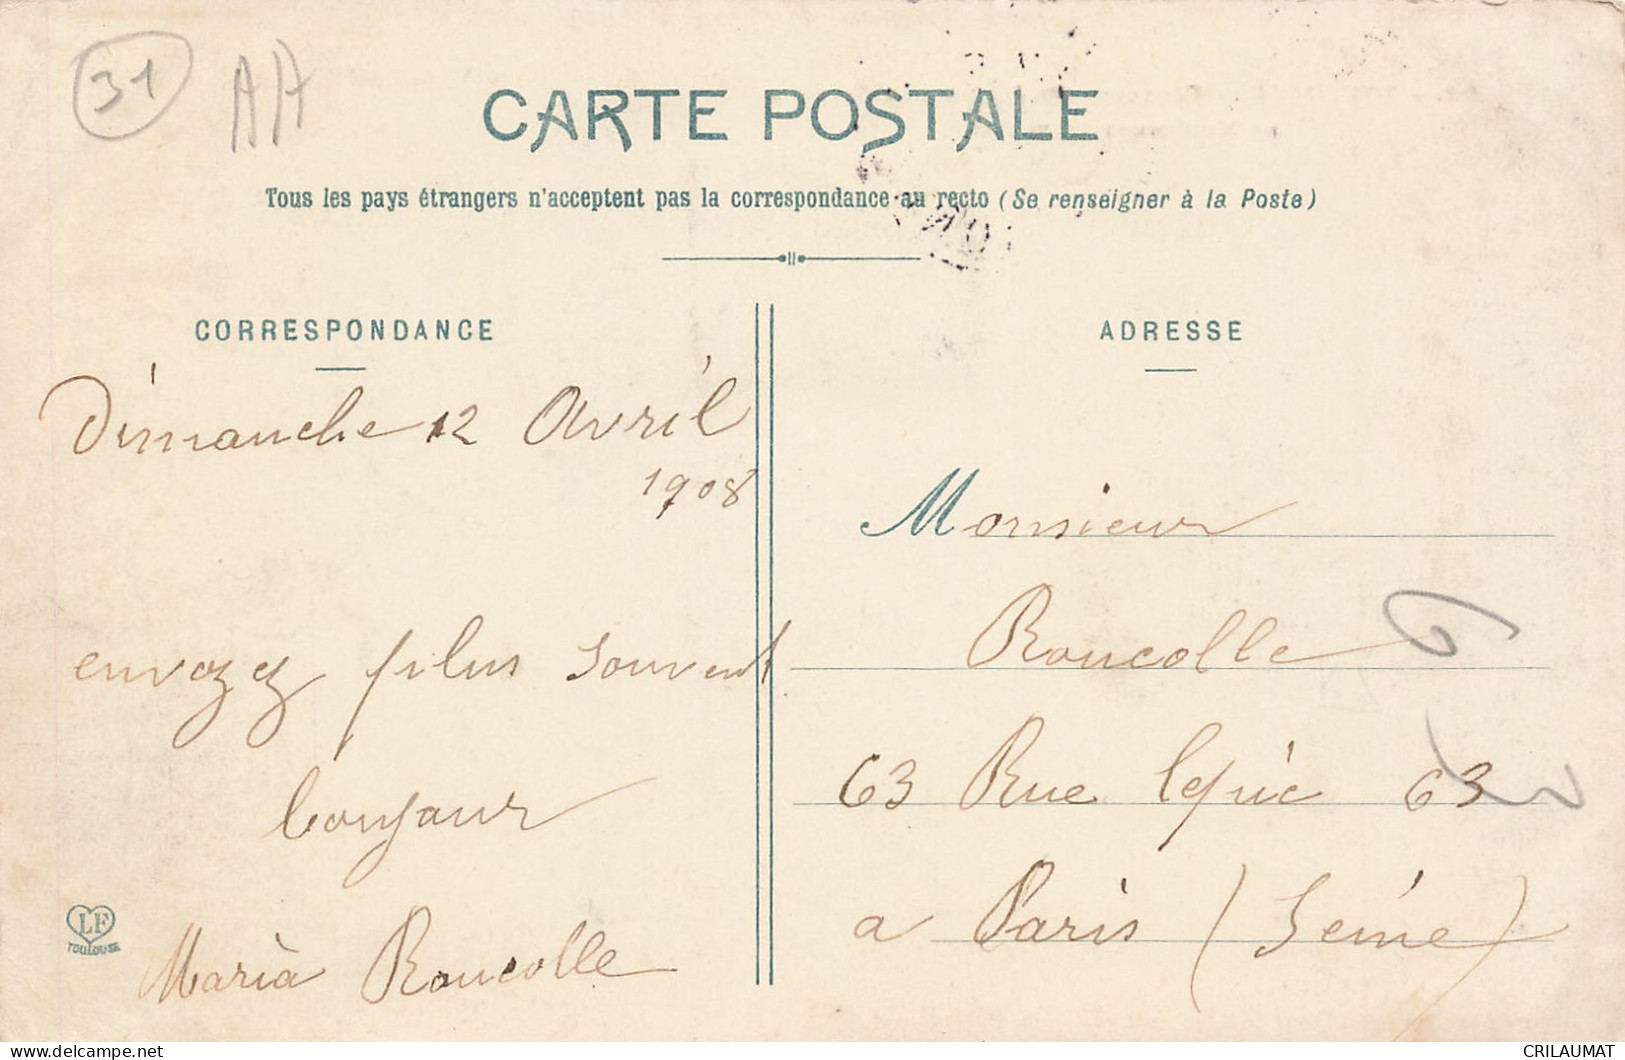 31 AA
CARTE POSTALE
Tous les pays étrangers n'acceptent pas la correspondance au recto (Se renseigner à la Poste)
CORRESPONDANCE
Dimanche 12 Avril
1908
envoyez plus souvent
bonjour
Maria Roucolle
LF
TOULOUSE
ADRESSE
Monsieur
Roucolle
63 Rue lepic 63
a Paris (Seine)
CRILAUMAT